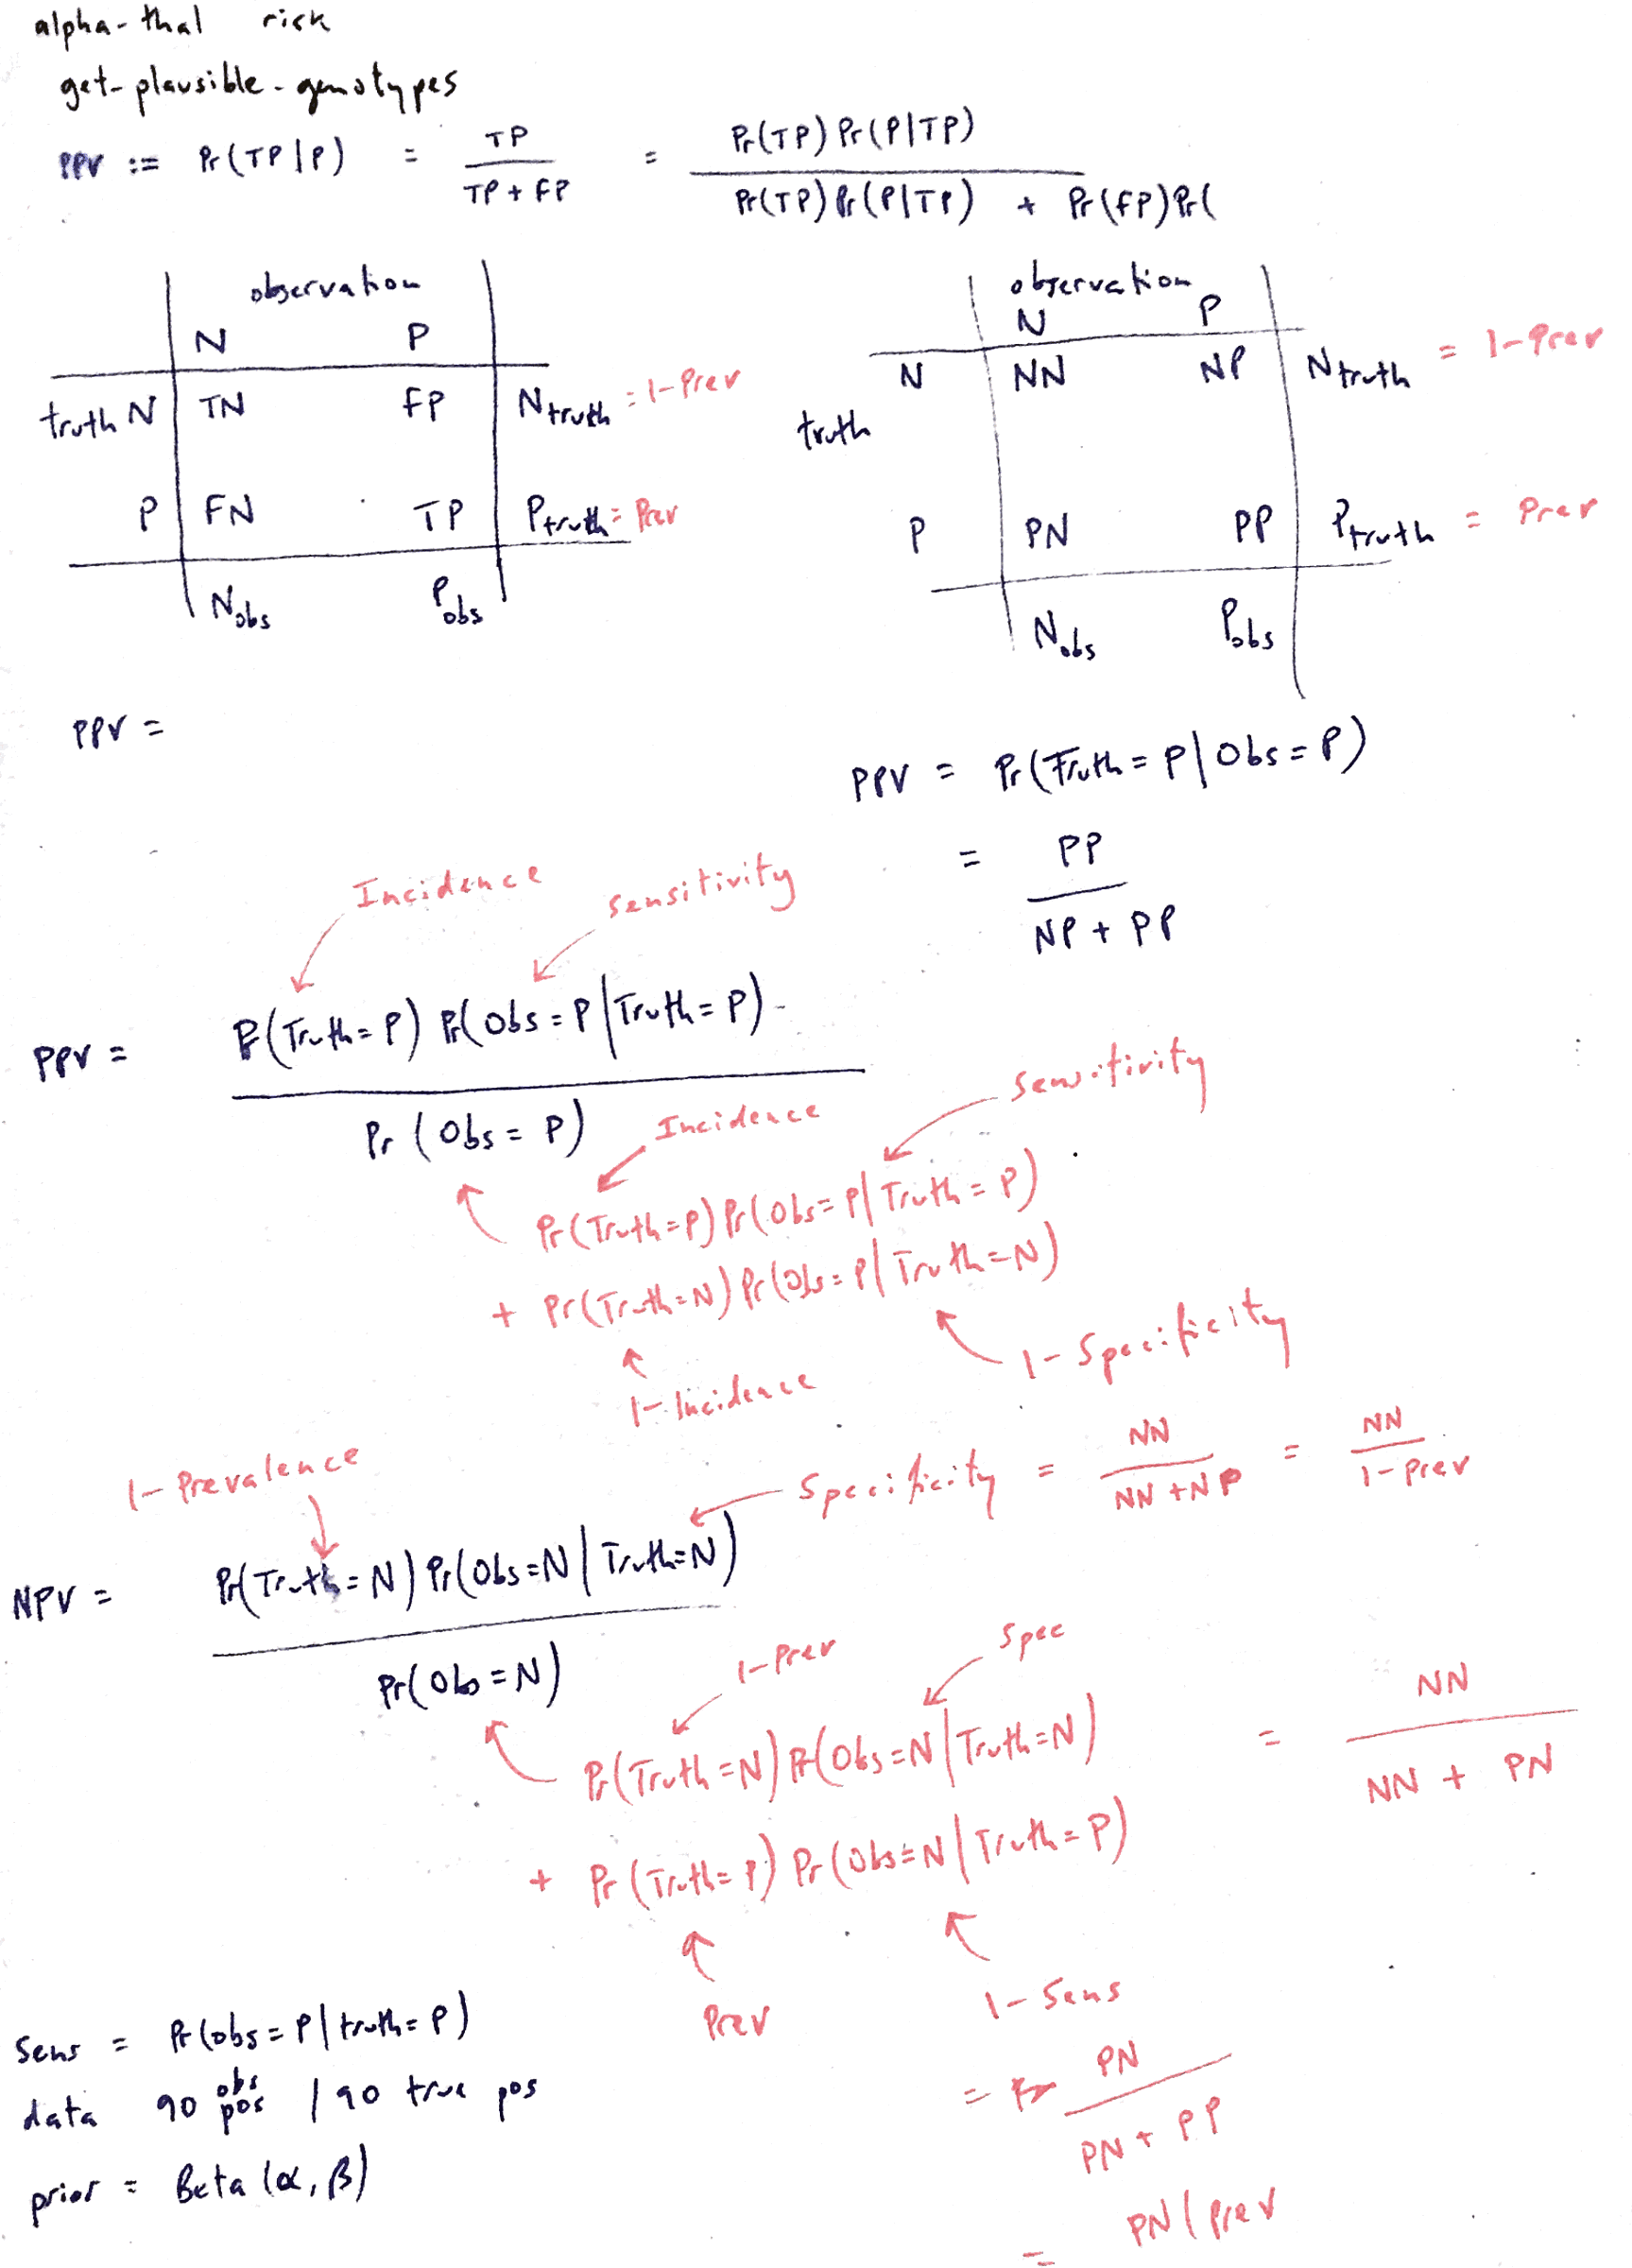 alpha-thal risk
get-plausible-genotypes
PPV := Pr(TP|P) = TP / TP + FP = Pr(TP) Pr(P|TP) / Pr(TP) Pr(P|TP) + Pr(FP) Pr(
observation
N P
truth N TN FP N truth = 1-Prev
P FN TP P truth = Prev
N obs P obs
observation
N P
N NN NP N truth = 1-Prev
truth
P PN PP P truth = Prev
N obs P obs
PPV =
PPV = Pr(Truth = P | Obs = P)
= PP / NP + PP
Incidence sensitivity
PPV = P(Truth = P) Pr(Obs = P | Truth = P)
Pr(Obs = P)
Incidence sensitivity
Pr(Truth = P) Pr(Obs = P | Truth = P)
+ Pr(Truth = N) Pr(Obs = P | Truth = N)
1-Incidence 1-Specificity
1-Prevalence Specificity = NN / NN + NP = NN / 1-Prev
NPV = Pr(Truth = N) Pr(Obs = N | Truth = N)
Pr(Obs = N)
1-Prev Spec
Pr(Truth = N) Pr(Obs = N | Truth = N) = NN / NN + PN
+ Pr(Truth = P) Pr(Obs = N | Truth = P)
Prev 1-Sens
= PN / PN + PP
= PN / prev
Sens = Pr(obs = P | truth = P)
data 90 obs pos / 90 true pos
prior = Beta(α, β)